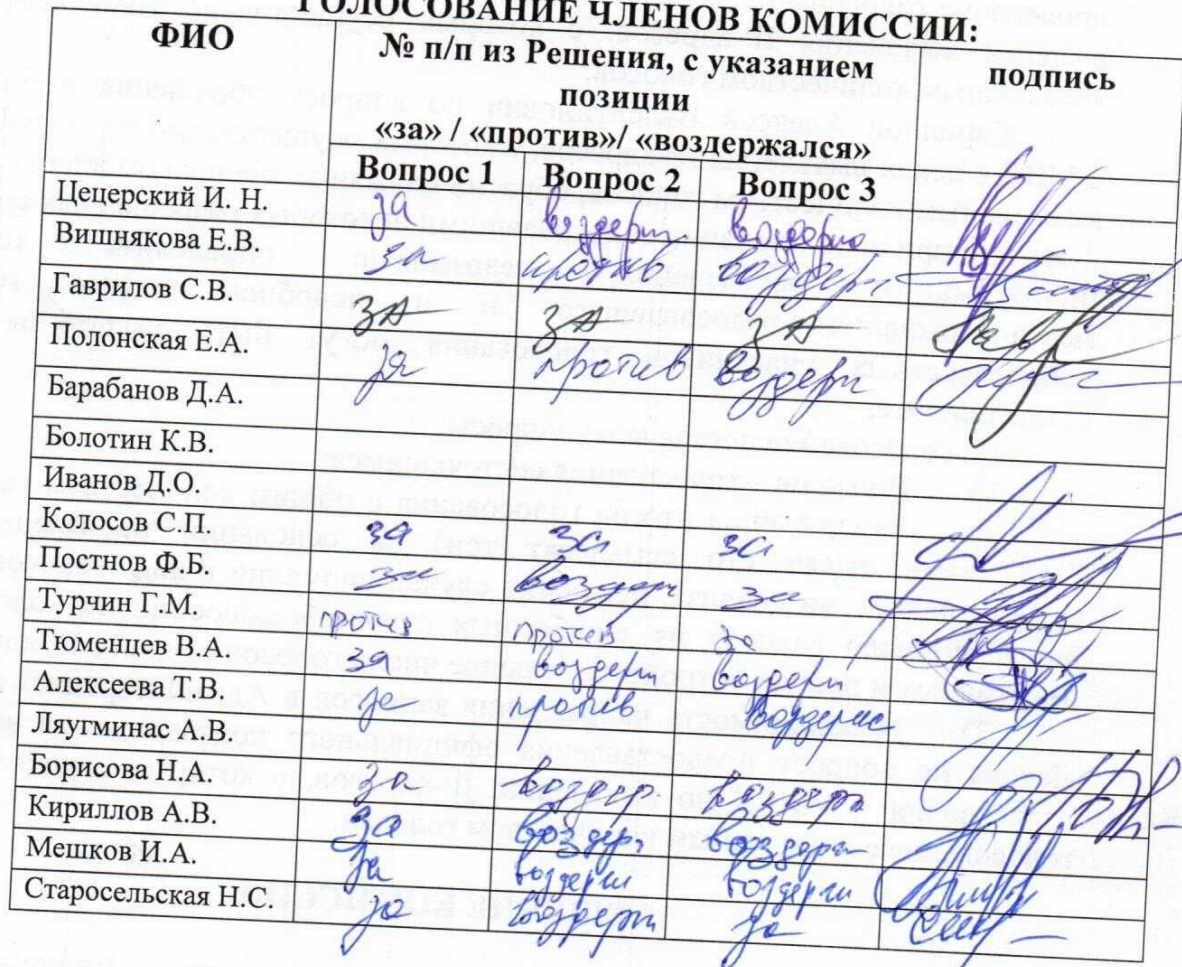 ГОЛОСОВАНИЕ ЧЛЕНОВ КОМИССИИ:
ФИО № п/п из Решения, с указанием подпись
позиции
«за» / «против»/ «воздержался»
Вопрос 1 Вопрос 2 Вопрос 3
Цецерский И. Н. за воздерж воздерж
Вишнякова Е.В. за против воздерж
Гаврилов С.В. ЗА ЗА ЗА
Полонская Е.А. за против воздерж
Барабанов Д.А.
Болотин К.В.
Иванов Д.О.
Колосов С.П. за за за
Постнов Ф.Б. за воздерж за
Турчин Г.М. против против за
Тюменцев В.А. за воздерж воздерж
Алексеева Т.В. за против воздерж
Ляугминас А.В.
Борисова Н.А. за воздер воздерж
Кириллов А.В. за воздер воздерж
Мешков И.А. за воздерж воздерж
Старосельская Н.С за воздерж за